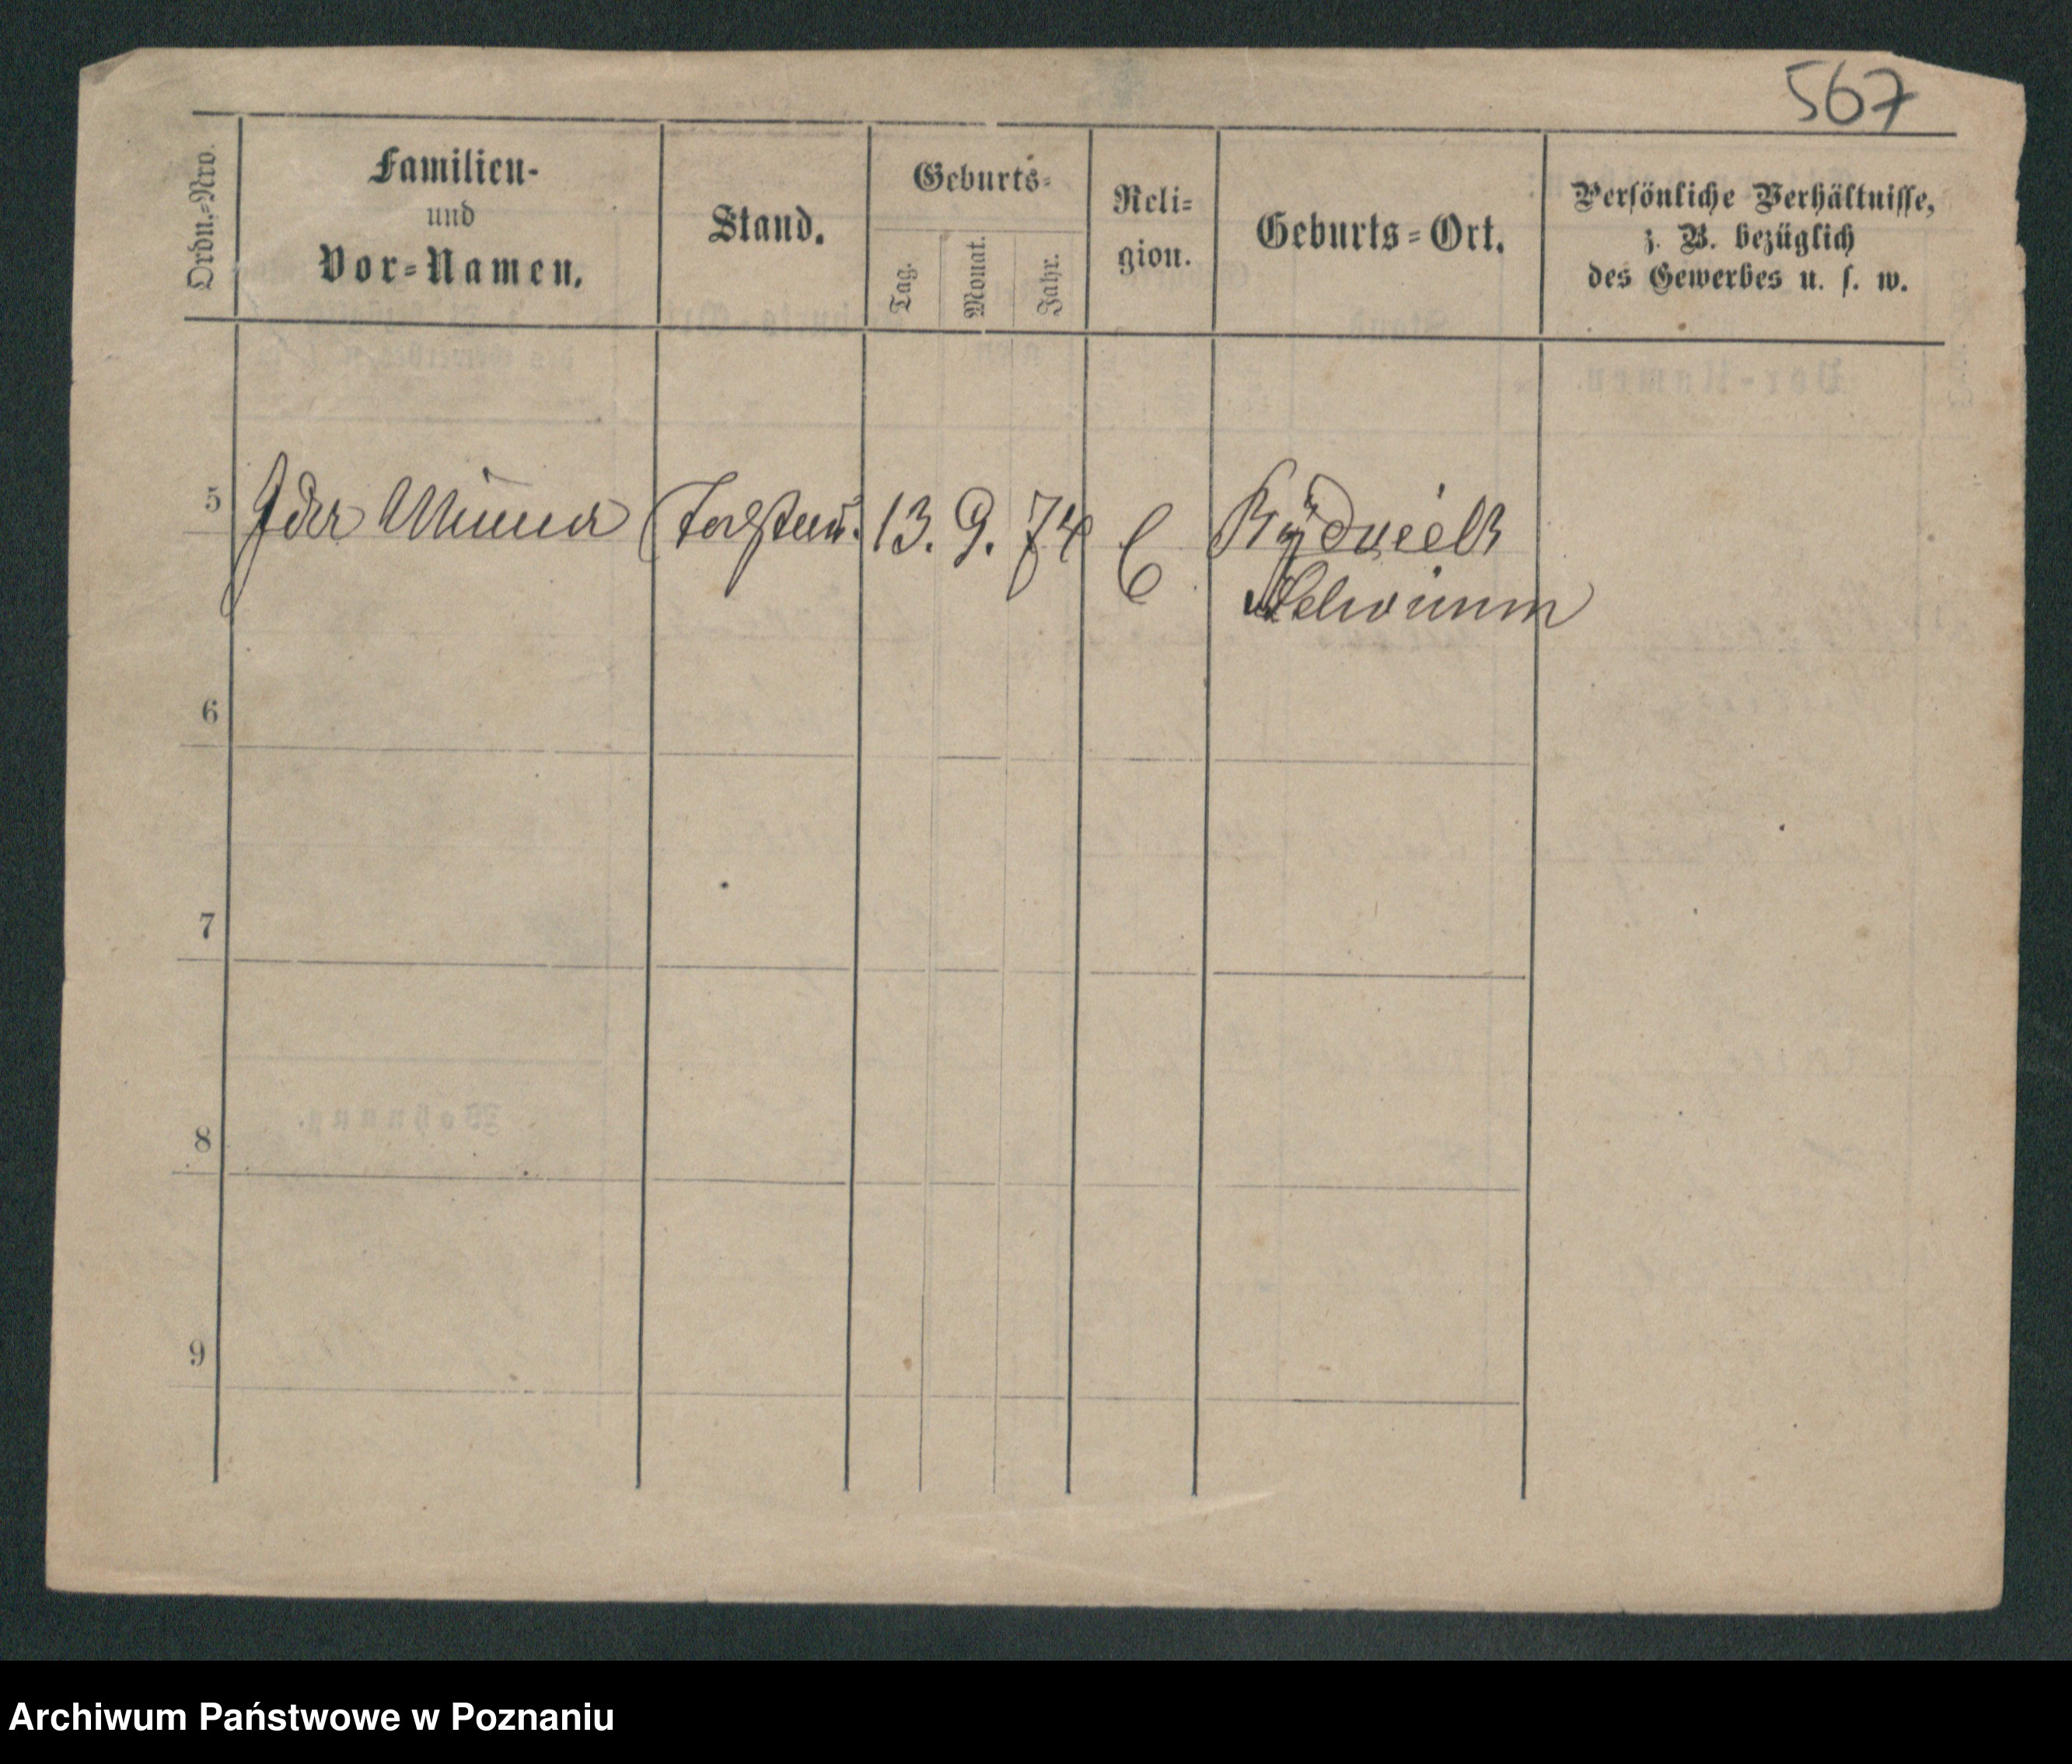 567
Ordn.=Nro.
Familien-
und
Vor=Namen.
Stand.
Geburts=
Tag.
Monat.
Jahr.
Reli=
gion.
Geburts=Ort.
Persönliche Verhältnisse,
z. B. bezüglich
des Gewerbes u. s. w.
5
13. 9. 74
Schrimm
6
7
8
9
Archiwum Państwowe w Poznaniu